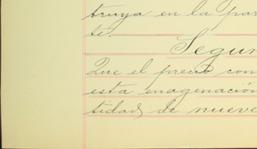 truya en la par
te.
Segun
Que el precio con
esta enagenación
tidad de nueve